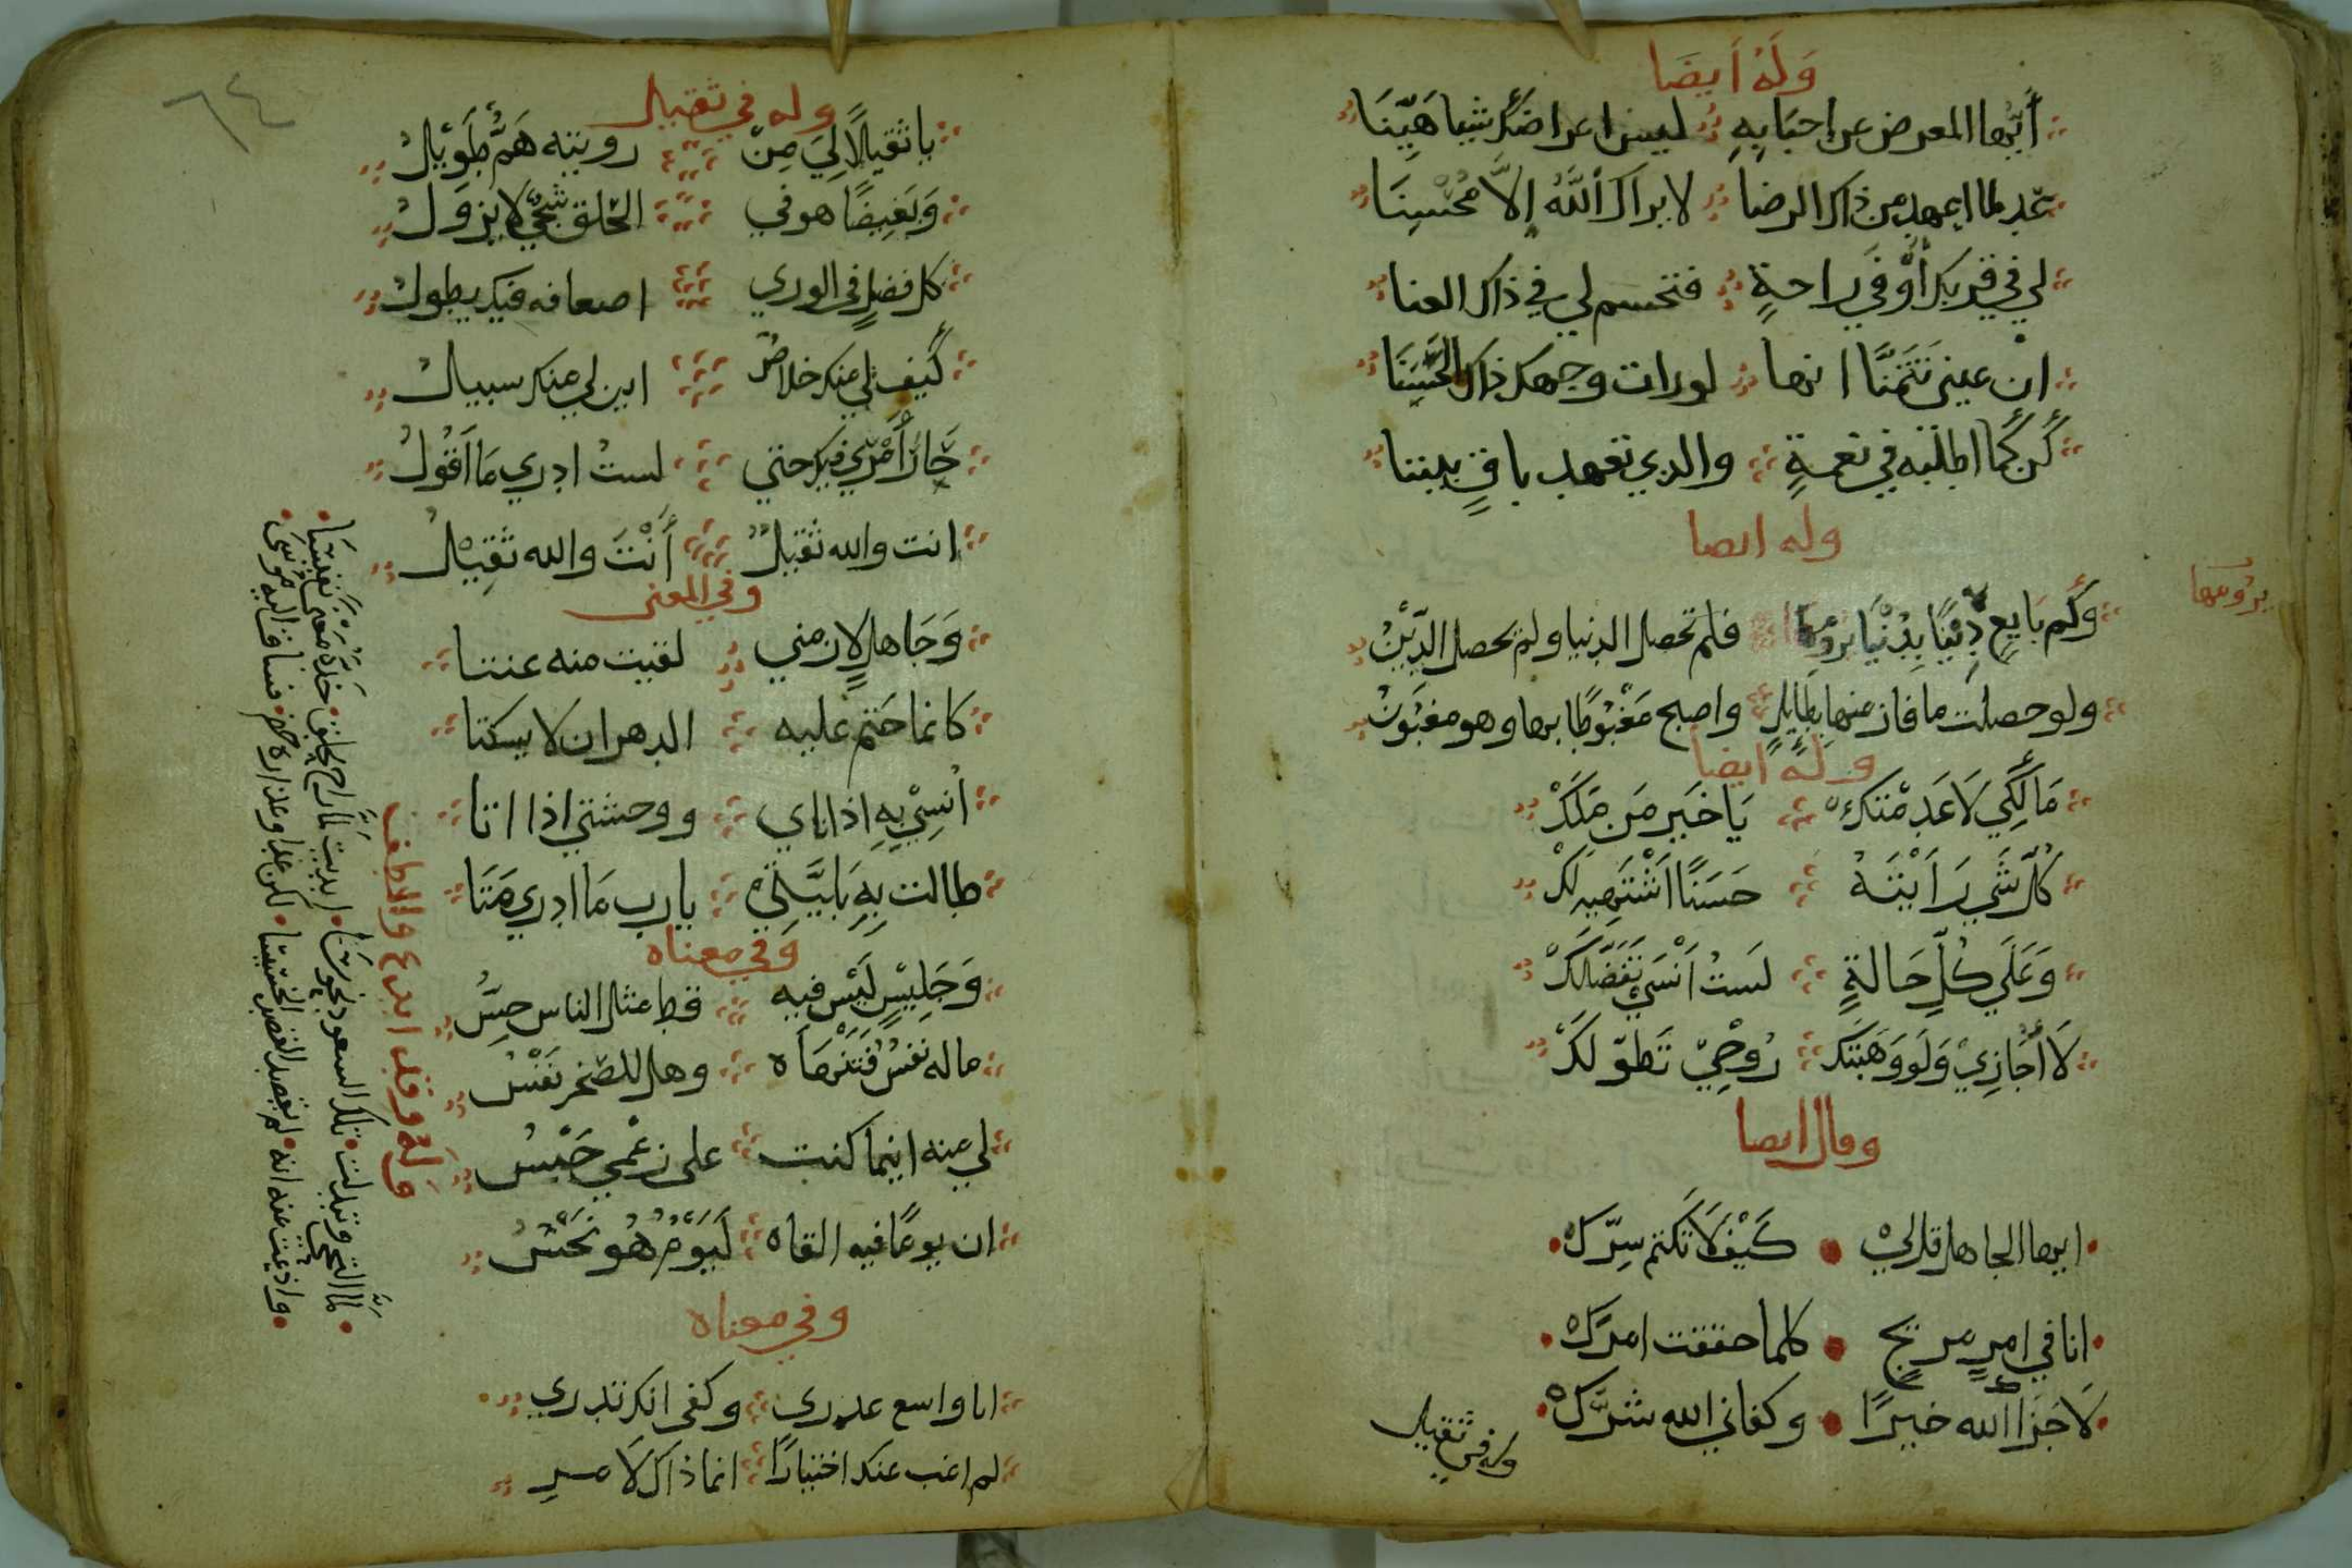 وَلَهُ أيضَا
أَيّهَا المعرض عن احبَابِهِ ليس اعراضك شيا هَيّنَا
عد لما اعهد من ذاك الرضا لا يراك اللَّهُ إلاَّ مُحْسِنَا
لي في قربك أَوْفَي راحةٍ فتحسم لي في ذاك العنا
ان عيني تَتَمَنَّا انها لورات وجهك ذاك الحَسَنَا
كُن كَما اطلبه في نعمةٍ والذي تعهد باقٍ بيننا
وله ايضا
وكَم بَايِعٍ دِيْنًا بِدُنْيَا يرومها فلم تحصل الدنيا ولم يحصل الدِّيْنُ
يرُومها
ولو حصلت ما فاز منها بِطَايِلٍ واصبح مَغْبُوطًا بها وهو مغبُونُ
وَلَهُ ايضا
مَالِكِي لَا عَدِمْتَكَ يَا خَيرَ مَن مَلَكْ
كُلّ شَي رَاَيْتَهُ حَسَنًا اَشْتَهِيهِ لَكْ
وَعَلَي كُلِّ حَالةٍ لَستُ اَنْسَي تَفَضّلَكْ
لَا اُجَازِيْ وَلَو وَهَبْتكَ رُوحِيْ تَطَوّلَكْ
وقال ايضا
ايها الجاهل قل لي كَيْفَ لَا تَكتم سِرّكْ
انا في امرٍ مريجٍ كلما حققت امرَكْ
لَا جَزَا اَللّه خيرًا وكفاني الله شرَّكْ
وله في ثقيل
٦٤
وله في ثقيل
يا ثقيلًا لِيَ مِنْ رويته هَمٌّ طَوِيْلُ
وَبَغِيضًا هو في الحلق شَجًي لا يزولُ
كل فضلٍ في الوري اضعافه فيك يطولُ
كَيفَ لي منك خلاصٌ اين لي منك سبيلُ
حَارَ أَمْرِي فيك حتي لستُ ادري مَا اَقُولُ
انت والله ثقيلٌ أَنْتَ والله ثقِيْلُ
وفي المعني
وَجَاهلٍ لازمني لقيت منه عنتا
كانما حَتم عليه الدهر ان لا يسكتا
اُنسِيْ بِهِ اذا ناي ووحشتي اذا اتا
طالت بِهِ بَلِيَّتِي يا رب مَا ادري مَتَا
وفي معناه
وَجَلِيْسٍ لَيْسَ فيه قط مثل الناس حِسُّ
ماله نفسٌ فَتَنْهَاه وهل للصّخر نَفْسُ
لي منه اينما كنت على زعمي حَبْسُ
ان يومًا فيه القاه لَيَوْمٌ هُو نَحْسُ
وفي معناه
انا واسع عذري وكفى انك تدري
لم اغب عنك اختيارًا انما ذاك لامرِ
وَلَهُ وقد ابدع والطف